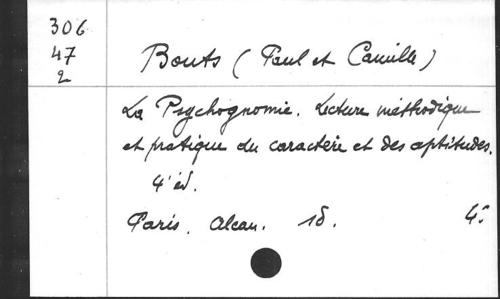 306
47
2
Bouts (Paul et Camille)
La Psychognomie. Lecture méthodique
et pratique du caractère et des aptitudes.
4e éd.
Paris. Alcan. 4.-